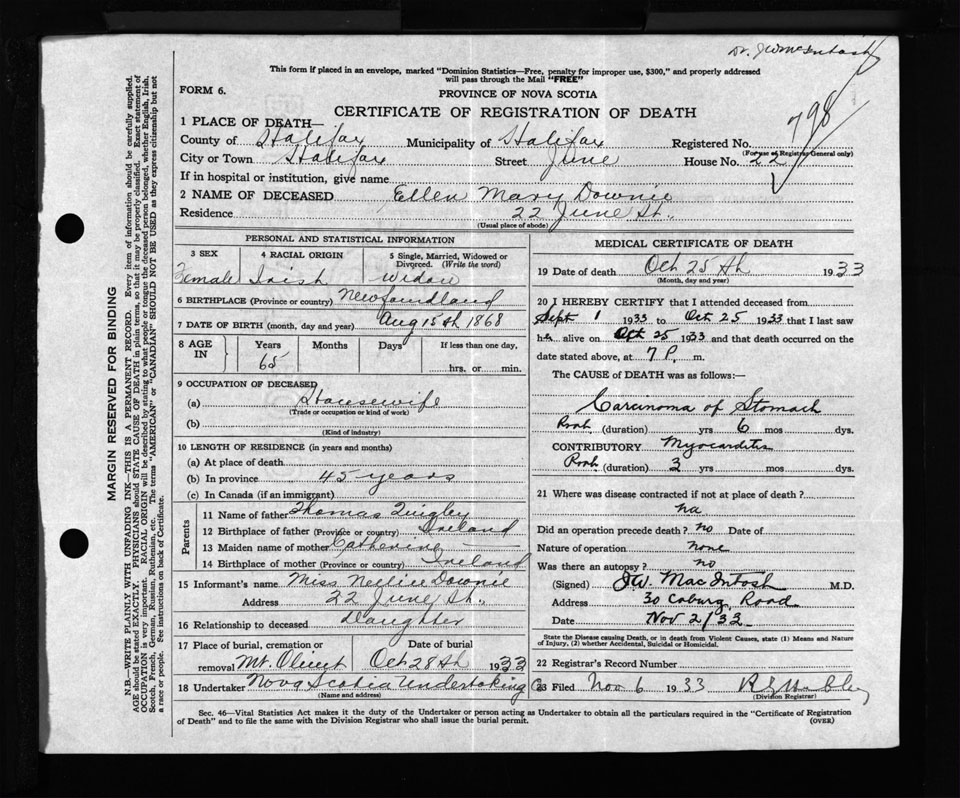 Dr. J W McIntosh
This form if placed in an envelope, marked "Dominion Statistics—Free, penalty for improper use, $300," and properly addressed
will pass through the Mail "FREE"
FORM 6.
PROVINCE OF NOVA SCOTIA
CERTIFICATE OF REGISTRATION OF DEATH
798
1 PLACE OF DEATH—
County of Halifax Municipality of Halifax Registered No.
(For use of Registrar General only)
City or Town Halifax Street June House No. 22
If in hospital or institution, give name
2 NAME OF DECEASED Ellen Mary Downie
Residence 22 June St.,
(Usual place of abode)
PERSONAL AND STATISTICAL INFORMATION
3 SEX 4 RACIAL ORIGIN 5 Single, Married, Widowed or
Divorced. (Write the word)
Female Irish Widow
6 BIRTHPLACE (Province or country) Newfoundland
7 DATE OF BIRTH (month, day and year) Aug 15th 1868
8 AGE IN Years Months Days If less than one day,
65 hrs. or min.
9 OCCUPATION OF DECEASED
(a) Housewife
(Trade or occupation or kind of work)
(b)
(Kind of industry)
10 LENGTH OF RESIDENCE (in years and months)
(a) At place of death
(b) In province 45 years
(c) In Canada (if an immigrant)
Parents
11 Name of father Thomas Quigley
12 Birthplace of father (Province or country) Ireland
13 Maiden name of mother Catherine —
14 Birthplace of mother (Province or country) Ireland
15 Informant's name Miss Nellie Downie
Address 22 June St.,
16 Relationship to deceased Daughter
17 Place of burial, cremation or Date of burial
removal Mt. Olivet Oct 28th 1933
18 Undertaker Nova Scotia Undertaking Co
(Name and address)
MEDICAL CERTIFICATE OF DEATH
19 Date of death Oct 25th 1933
(Month, day and year)
20 I HEREBY CERTIFY that I attended deceased from
Sept 1 1933 to Oct 25 1933 that I last saw
h alive on Oct 25 1933 and that death occurred on the
date stated above, at 7 P. m.
The CAUSE of DEATH was as follows:—
Carcinoma of Stomach
Prob (duration) yrs 6 mos dys.
CONTRIBUTORY Myocarditis
Prob (duration) 3 yrs mos dys.
21 Where was disease contracted if not at place of death?
na
Did an operation precede death? no Date of
Nature of operation none
Was there an autopsy? no
(Signed) J.W. MacIntosh M.D.
Address 30 Coburg Road
Date Nov 2/33
State the Disease causing Death, or in death from Violent Causes, state (1) Means and Nature
of Injury, (2) whether Accidental, Suicidal or Homicidal.
22 Registrar's Record Number
23 Filed Nov 6 1933
(Division Registrar)
Sec. 46—Vital Statistics Act makes it the duty of the Undertaker or person acting as Undertaker to obtain all the particulars required in the "Certificate of Registration
of Death" and to file the same with the Division Registrar who shall issue the burial permit. (OVER)
MARGIN RESERVED FOR BINDING
N.B.—WRITE PLAINLY WITH UNFADING INK—THIS IS A PERMANENT RECORD. Every item of information should be carefully supplied.
AGE should be stated EXACTLY. PHYSICIANS should STATE CAUSE OF DEATH in plain terms, so that it may be properly classified. Exact statement of
OCCUPATION is very important. RACIAL ORIGIN will be described by stating to what people or tongue the deceased person belonged, whether English, Irish,
Scotch, French, German, Russian, Ruthenian, etc. The terms "AMERICAN" or "CANADIAN" SHOULD NOT BE USED as they express citizenship but not
a race or people. See instructions on back of Certificate.